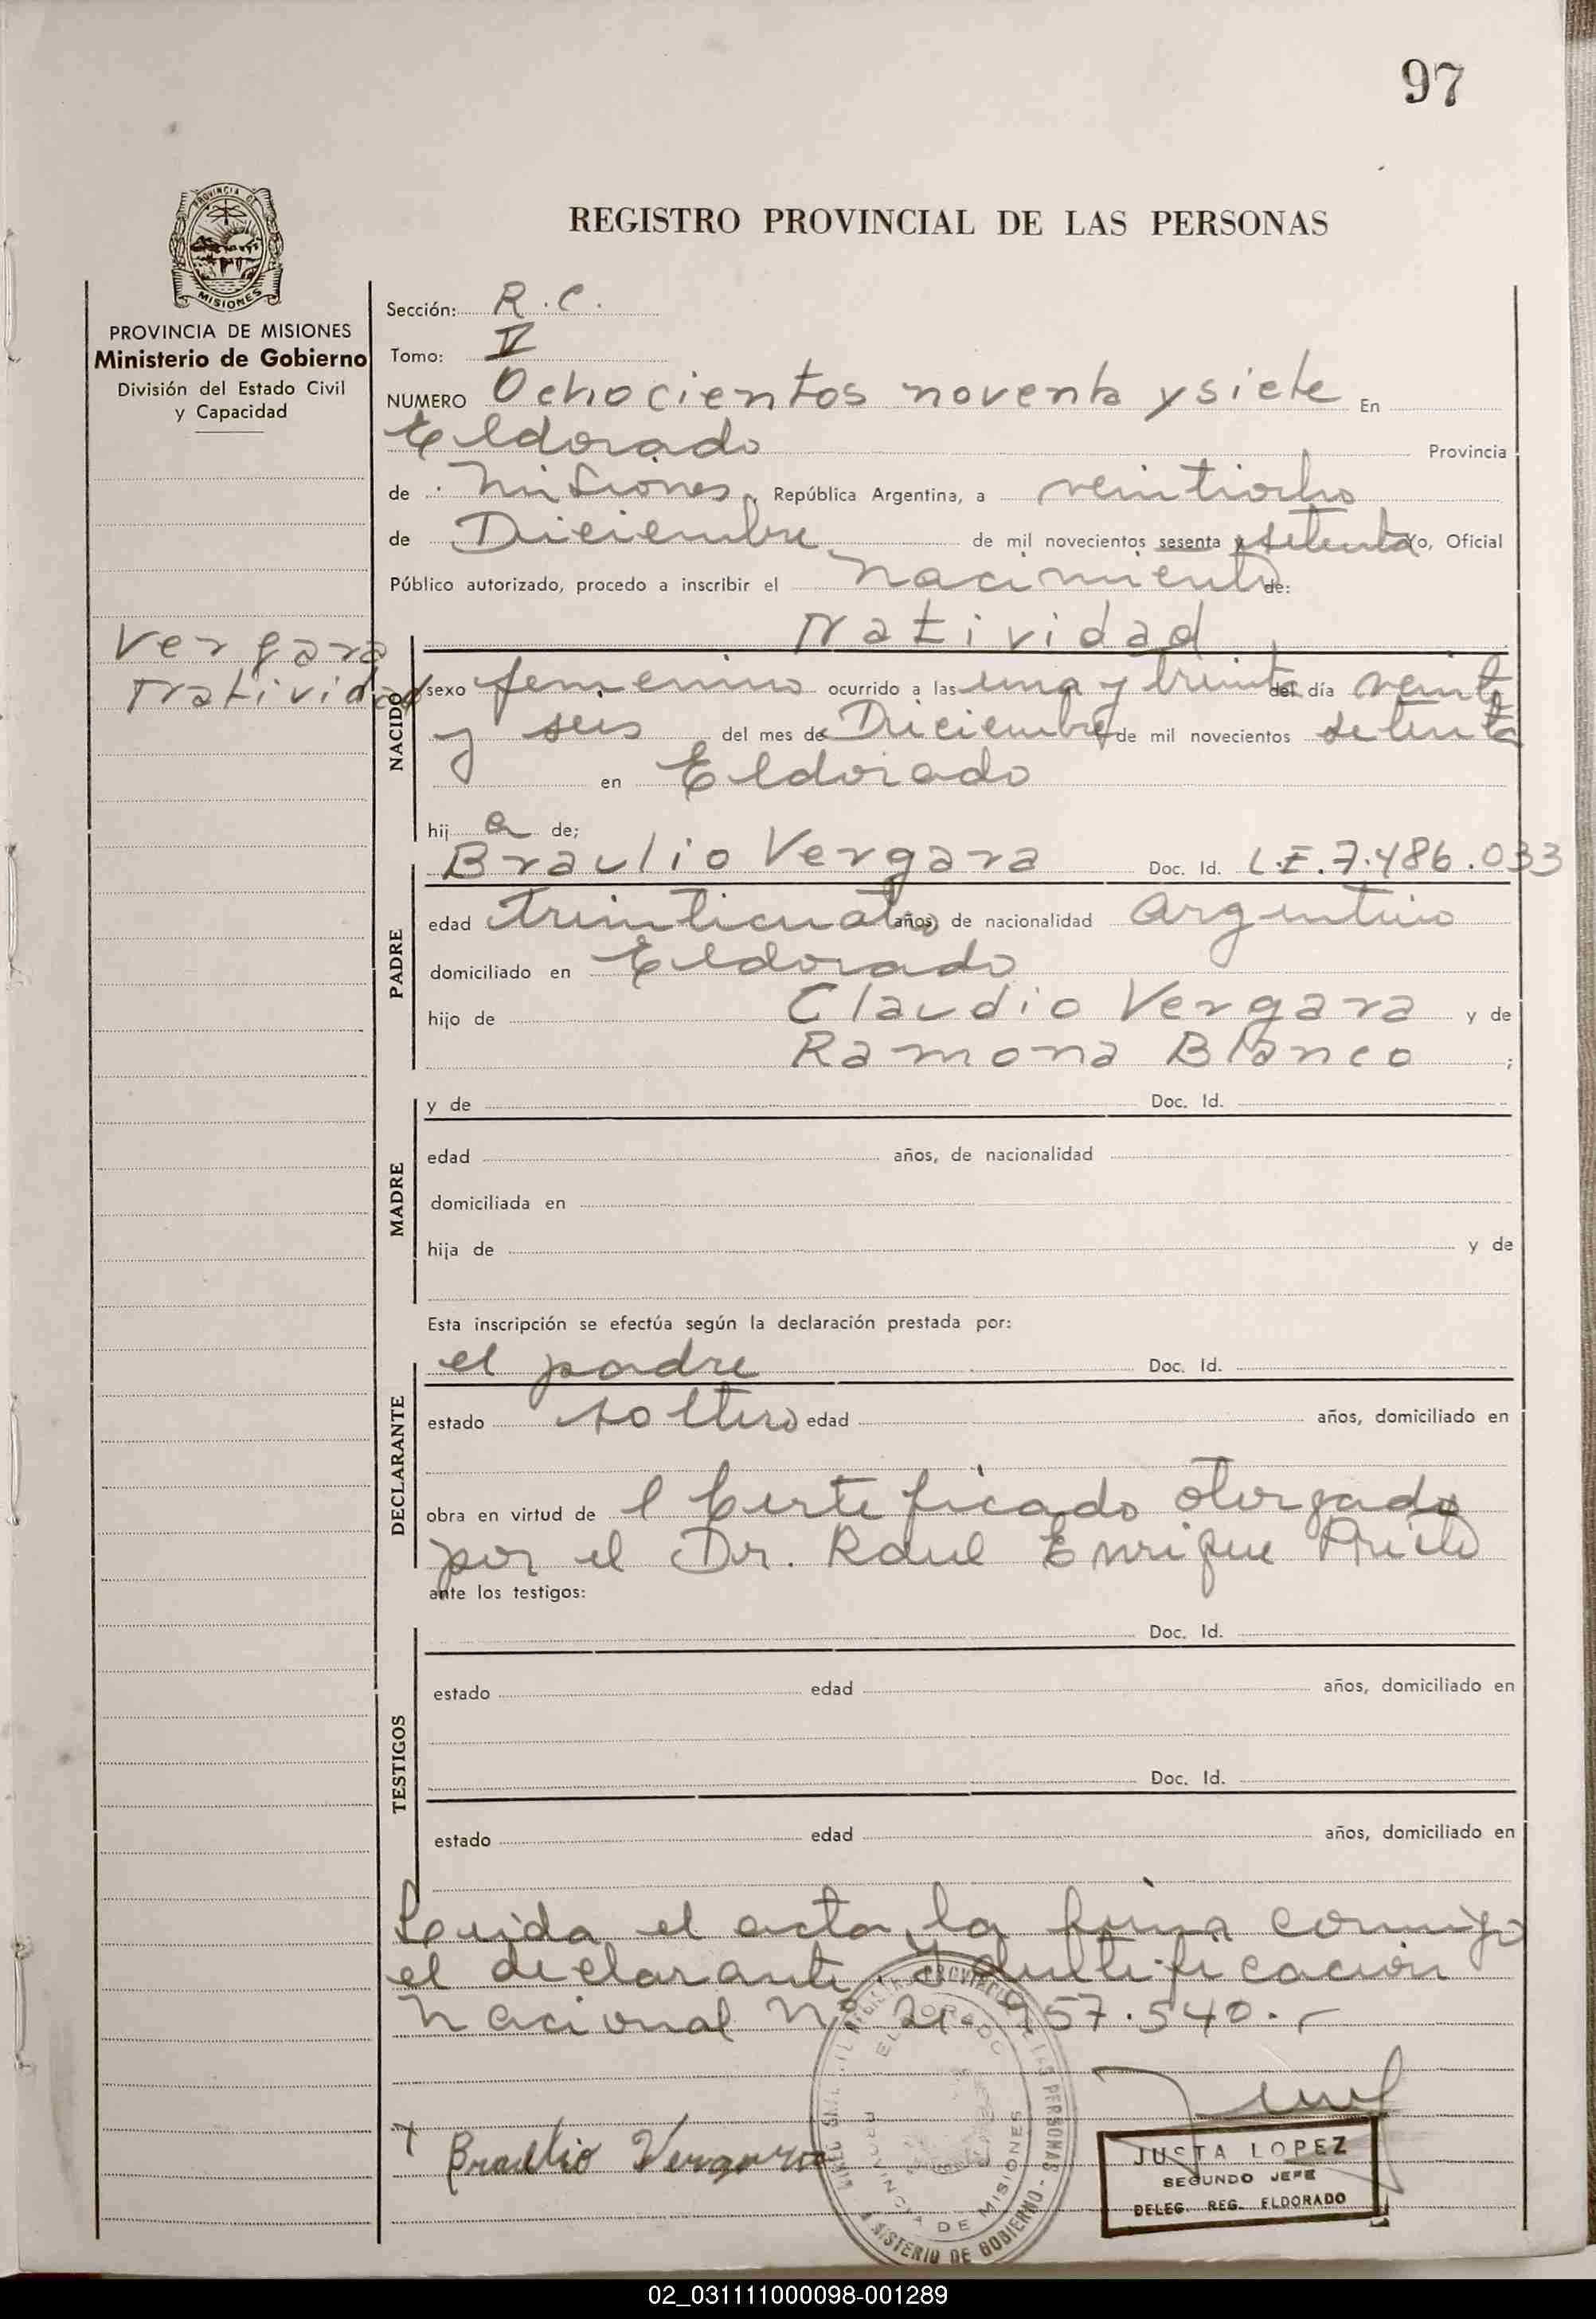 97
PROVINCIA DE
MISIONES
REGISTRO PROVINCIAL DE LAS PERSONAS
PROVINCIA DE MISIONES
Ministerio de Gobierno
División del Estado Civil
y Capacidad
Sección: R.C.
Tomo: V
NUMERO Ochocientos noventa y siete En
Eldorado Provincia
de Misiones, República Argentina, a veintiocho
de Diciembre de mil novecientos sesenta y setenta yo, Oficial
Público autorizado, procedo a inscribir el nacimiento de:
Natividad
Vergara
Natividad
NACIDO
sexo femenino ocurrido a las una y treinta del día veinte
y seis del mes de Diciembre de mil novecientos setenta
en Eldorado
hij a de;
Braulio Vergara Doc. Id. L.E. 7.486.033
PADRE
edad treinticuatro años, de nacionalidad argentino
domiciliado en Eldorado
hijo de Claudio Vergara y de
Ramona Blanco ;
MADRE
y de Doc. Id.
edad años, de nacionalidad
domiciliada en
hija de y de
Esta inscripción se efectúa según la declaración prestada por:
DECLARANTE
el padre Doc. Id.
estado soltero edad años, domiciliado en
obra en virtud de l Certificado otorgado
por el Dr. Raul Enrique Prieto
ante los testigos:
TESTIGOS
Doc. Id.
estado edad años, domiciliado en
Doc. Id.
estado edad años, domiciliado en
Leida el acta, la firma conmigo
el declarante.
Nacional Nº 21.957.540.-
ELDORADO
PROVINCIA DE MISIONES
MINISTERIO DE GOBIERNO
Braulio Vergara
JUSTA LOPEZ
SEGUNDO JEFE
DELEG. REG. ELDORADO
02_031111000098-001289